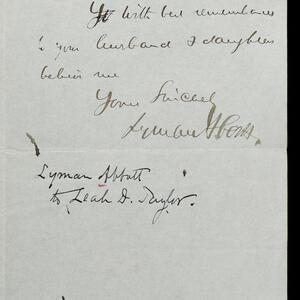 With best remembrances
to your husband & daughters
believe me
Yours Sincerely
Lyman Abbott.
Lyman Abbott
to Leah D. Taylor.